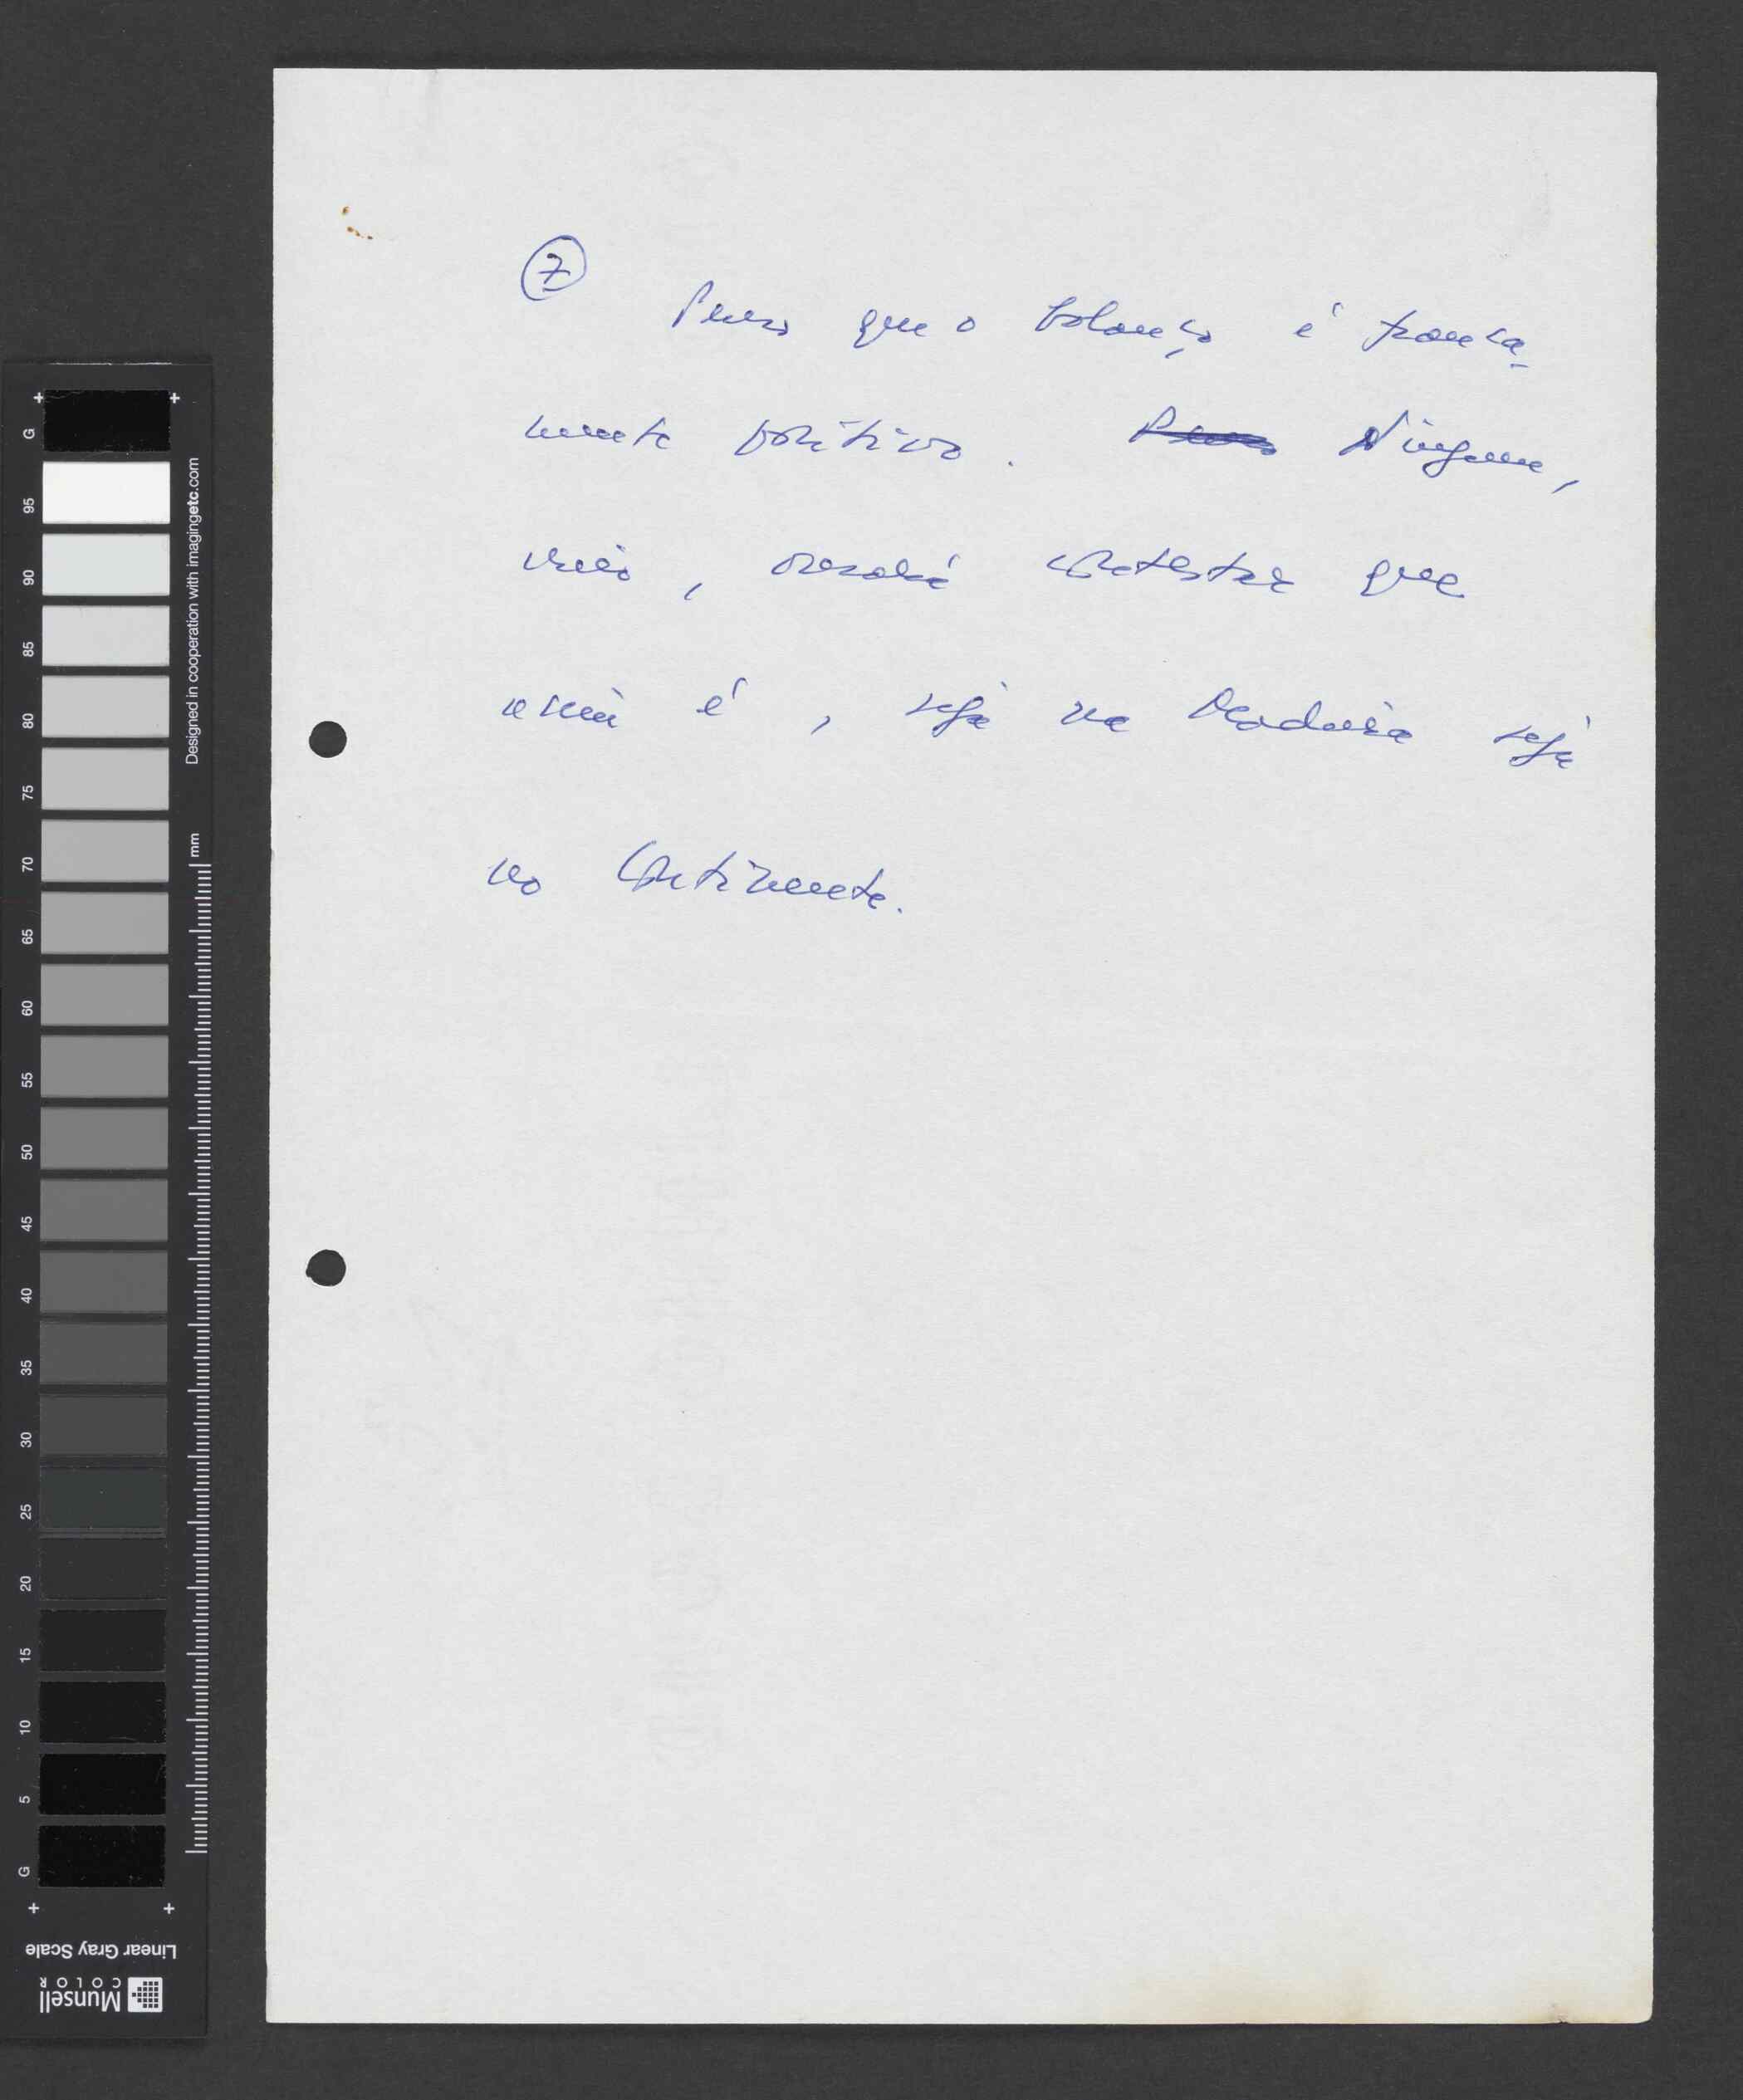 7
Penso que o balanço é franca-
mente positivo. Penso Ninguem,
creio, ousará contestar que
assim é, seja na Madeira seja
no Continente.
G
95
90
85
80
75
70
65
60
55
50
45
40
35
30
25
20
15
10
5
G
Designed in cooperation with imagingetc.com
mm
Linear Gray Scale
Munsell
COLOR